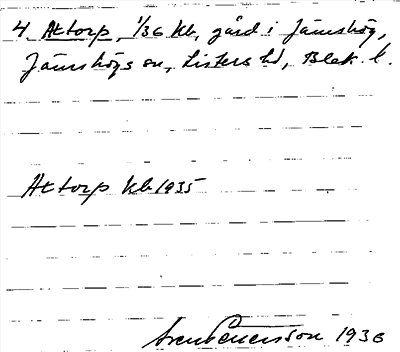 4 Attorp, 1/36 kb, gård i Jämshög,
Jämshögs sn, Listers hd, Blek. l.
Attorp kb 1935
Sven Benson 1936